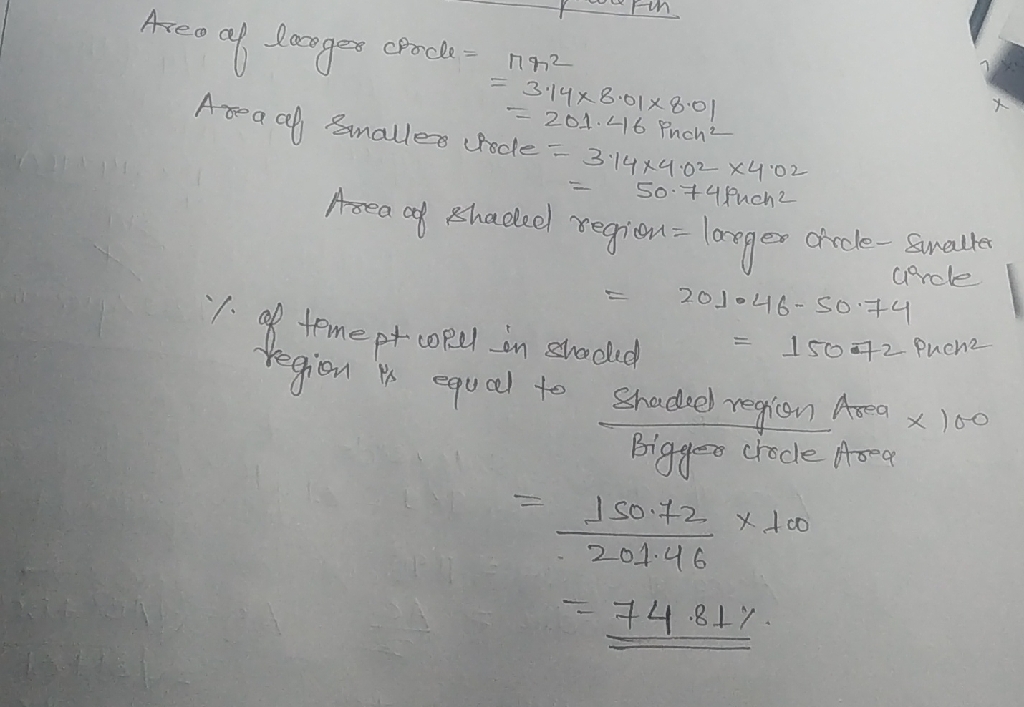 Area of larger circle = πr²
= 3.14 x 8.01 x 8.01
= 201.46 inch²
Area of smaller circle = 3.14 x 4.02 x 4.02
= 50.74 inch2
Area of shaded region = larger circle - smaller
circle
= 201.46 - 50.74
= 150.72 inch2
% of time pt will in shaded
region is equal to
Shaded region Area x 100
Bigger circle Area
= 150.72 x 100
201.46
= 74.81%.